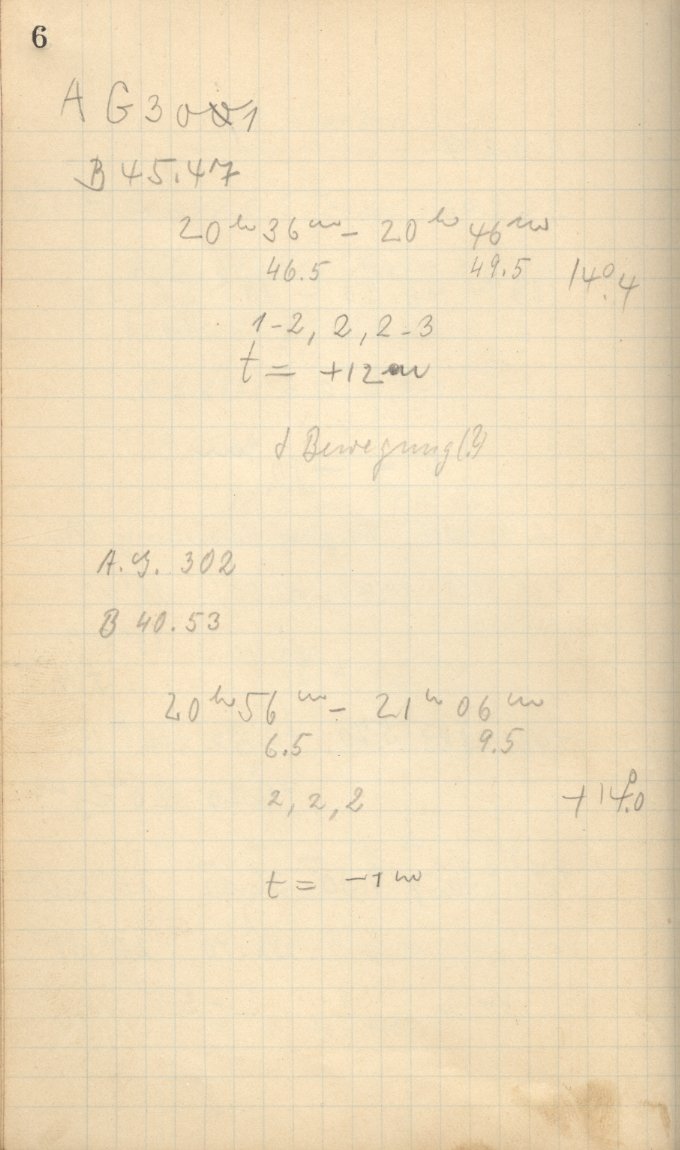 6
A G 3001
B 45.47
20ʰ 36ᵐ – 20ʰ 46ᵐ
46.5 49.5 14°.4
1-2, 2, 2-3
t = +12ᵐ
Bewegung(?)
A.G. 302
B 40.53
20ʰ 56ᵐ – 21ʰ 06ᵐ
6.5 9.5
2, 2, 2 +14°.0
t = –1ᵐ